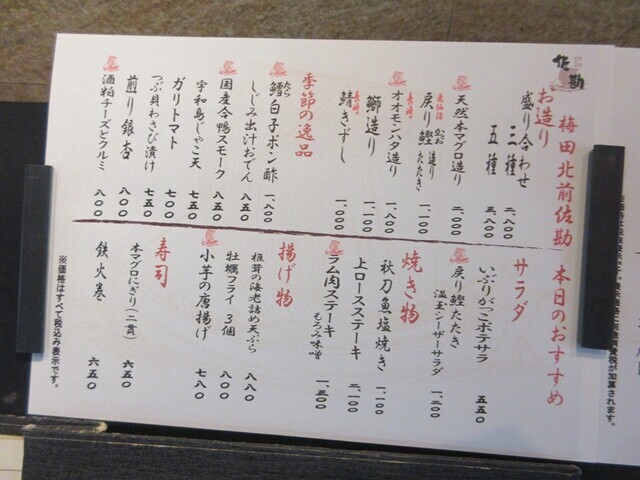 佐勘
梅田北前佐勘 本日のおすすめ
お造り
盛り合わせ
三種 二、八〇〇
五種 三、八〇〇
天然本マグロ造り 二、〇〇〇
気仙沼
戻り鰹造り たたき 一、一〇〇
かつお
長崎
オオモンハタ造り 一、八〇〇
鰤造り 一、一〇〇
長崎
鯖きずし 一、〇〇〇
季節の逸品
鱈白子ポン酢 一、八〇〇
たら
しじみ出汁おでん 八五〇
国産合鴨スモーク 八五〇
宇和島じゃこ天 七五〇
ガリトマト 七〇〇
つぶ貝わさび漬け 七五〇
煎り銀杏 八〇〇
酒粕チーズとクルミ 八〇〇
サラダ
いぶりがっこポテサラ 五五〇
戻り鰹たたき
温玉シーザーサラダ 一、二〇〇
焼き物
秋刀魚塩焼き 一、一〇〇
上ロースステーキ 二、一〇〇
ラム肉ステーキ
もろみ味噌 一、三〇〇
揚げ物
椎茸の海老詰め天ぷら 八八〇
牡蠣フライ 3個 八〇〇
小芋の唐揚げ 七八〇
寿司
本マグロにぎり(二貫) 六五〇
鉄火巻 六五〇
※価格はすべて税込み表示です。